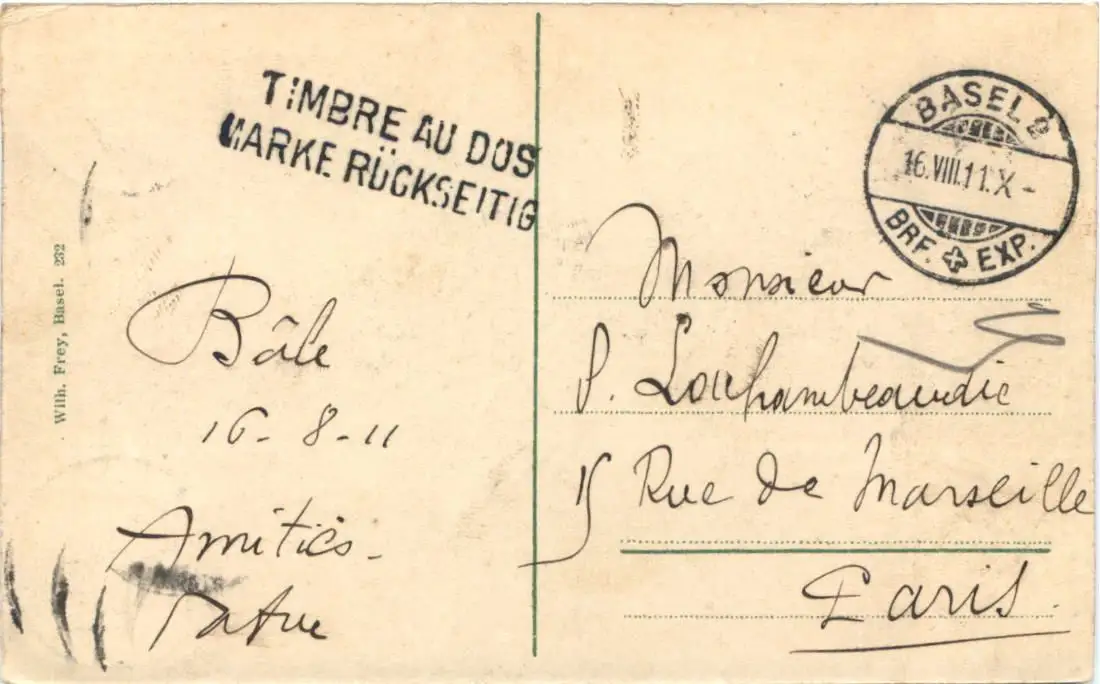 TIMBRE AU DOS
MARKE RÜCKSEITIG
BASEL 2
16.VIII.11.X-
BRF. EXP.
Wilh. Frey, Basel. 232
Bâle
16-8-11
Amitiés-
Monsieur
P. Lachambeaudie
15 Rue de Marseille
Paris.